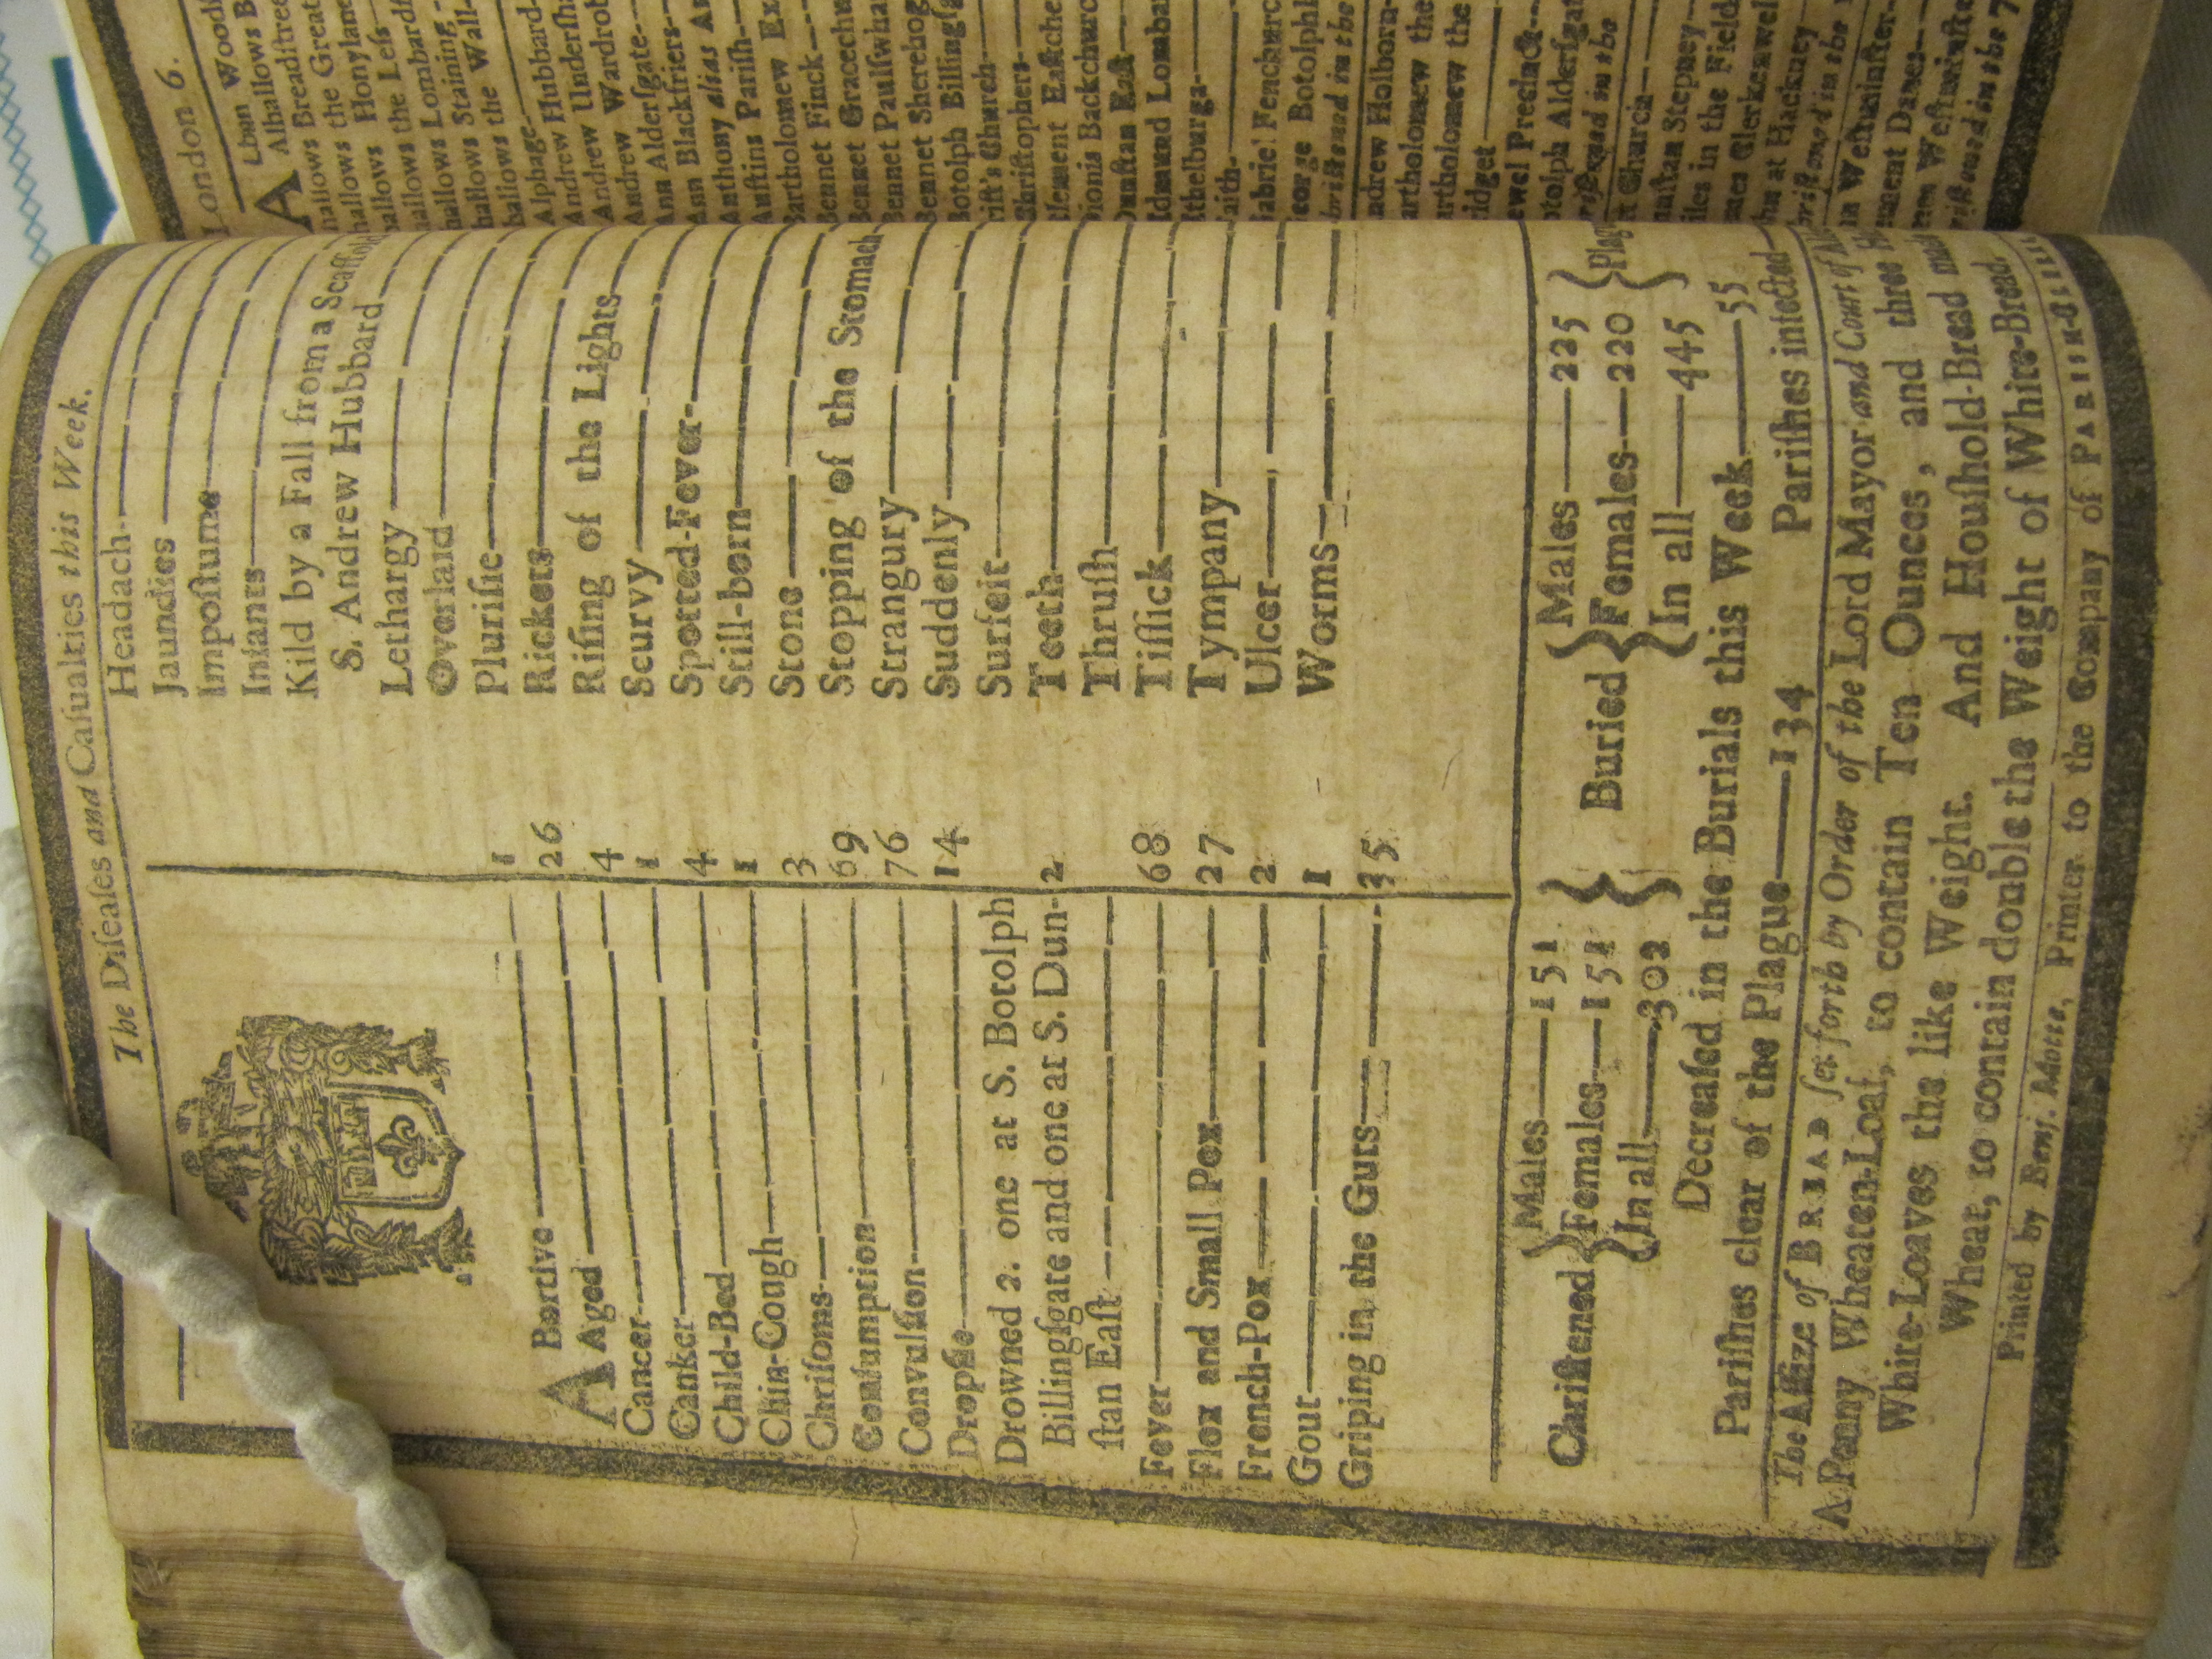 The Diſeaſes and Caſualties this Week.
ABortive—— 1
Aged—— 26
Cancer—— 4
Canker—— 1
Child-Bed—— 4
Chin-Cough—— 1
Chriſoms—— 3
Conſumption—— 69
Convulſion—— 76
Dropſie—— 14
Drowned 2. one at S. Botolph
Billingſgate and one at S. Dun-
ſtan Eaſt—— 2
Fever—— 68
Flox and Small Pox—— 27
French-Pox—— 2
Gout—— 1
Griping in the Guts—— 35
Headach——
Jaundies——
Impoſtume——
Infants——
Kild by a Fall from a Scaffold
S. Andrew Hubbard——
Lethargy——
Overlaid——
Pluriſie——
Rickets——
Riſing of the Lights——
Scurvy——
Spotted-Fever——
Still-born——
Stone——
Stopping of the Stomach
Strangury——
Suddenly——
Surfeit——
Teeth——
Thruſh——
Tiſſick——
Tympany——
Ulcer——
Worms——
Chriſtened { Males—— 151
Females—— 151
In all—— 302 }
Buried { Males—— 225
Females—— 220
In all—— 445 } Plag
Decreaſed in the Burials this Week—— 55
Pariſhes clear of the Plague—— 134 Pariſhes infected—
The Aſſize of BREAD ſet forth by Order of the Lord Mayor and Court of
A Penny Wheaten-Loaf, to contain Ten Ounces, and three
White-Loaves the like Weight. And Houſhold-Bread
Wheat, to contain double the Weight of White-Bread.
Printed by Benj. Motte, Printer to the Company of PARISH-
London 6.
ALban Wood
Alhallows B
hallows Breadſtree
hallows the Great
hallows Honylane
hallows the Leſs
hallows Lombard
hallows Staining
hallows the Wall-
Alphage—
Andrew Hubbard-
Andrew Underſha
Andrew Wardrob
Ann Alderſgate—
Ann Blackfriers—
Anthony alias A
Auſtins Pariſh—
Bartholomew Ex
Bennet Finck—
Bennet Gracechu
Bennet Paulſwha
Bennet Sherehog
Botolph Billingſg
riſt's Church—
Chriſtophers—
lement Eaſtche
Dionis Backchurc
Dunſtan Eaſt—
Edmund Lomba
thelburga—
aith—
abriel Fenchurc
eorge Botolphl
briſtened in the
ndrew Holborn-
artholomew the
artholomew the
ridget—
ewel Precinct—
otolph Alderſgat
riſtened in the
Church—
unſtan Stepney—
iles in the Field
ames Clerkenwel
hn at Hackney
briſtened in the
Weſtminſter-
ement Danes—
Weſtminſte
riſtened in the 7